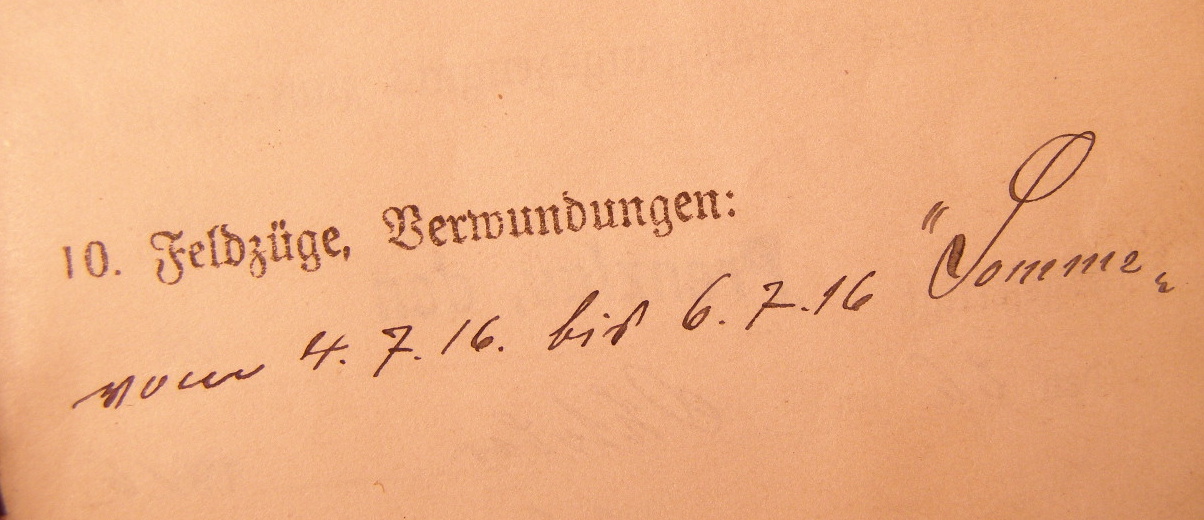 10. Feldzüge, Verwundungen:
vom 4. 7. 16. bis 6. 7. 16 "Somme„